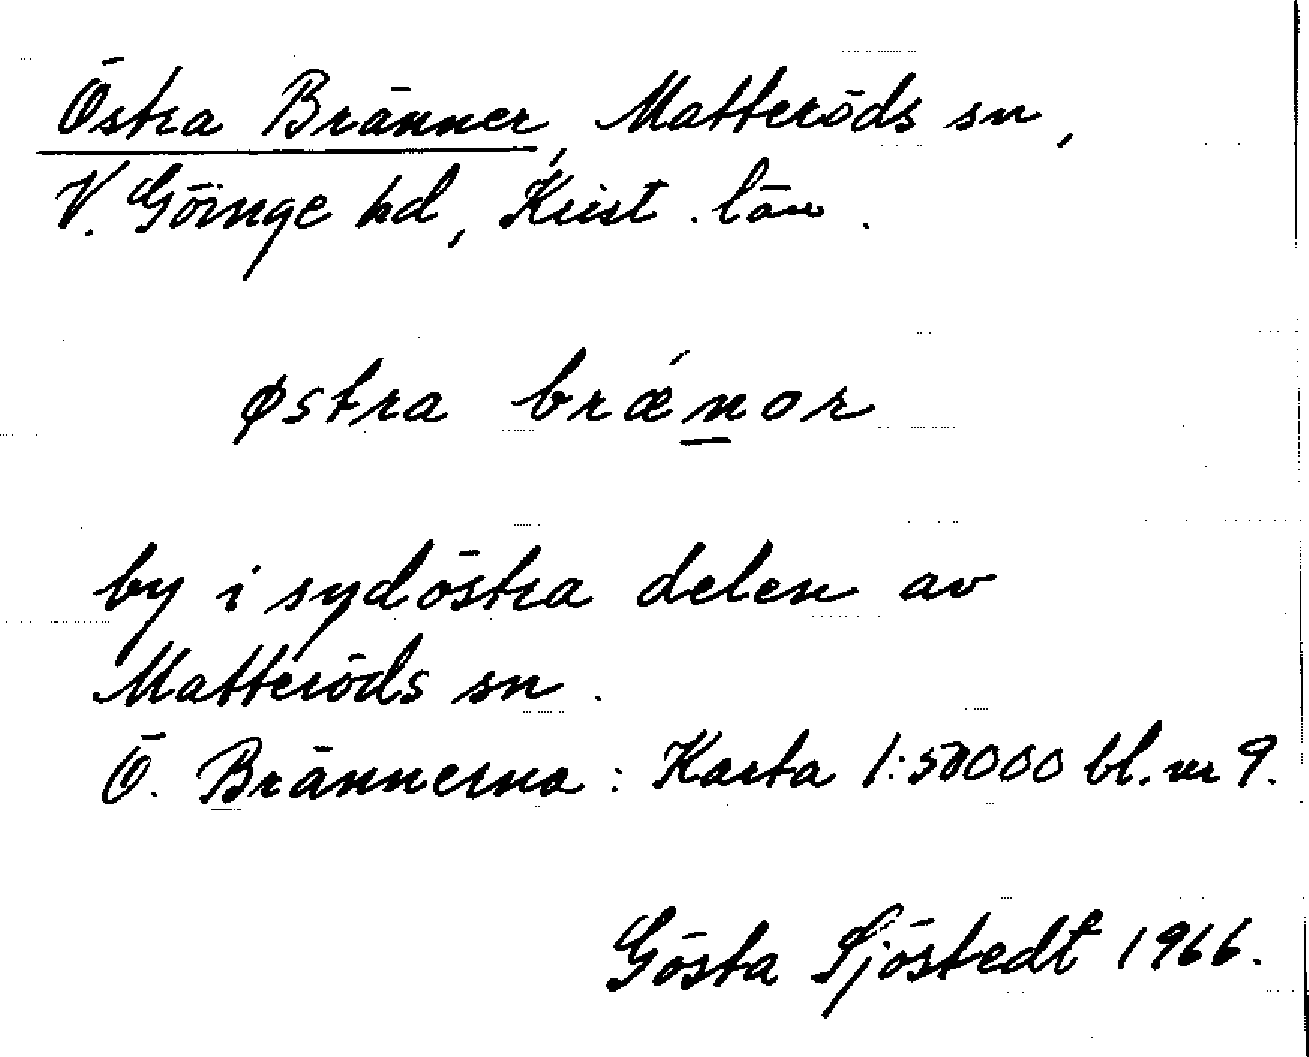 Östra Bränner, Matteröds sn,
V. Göinge hd, Krist. län.
østra brǽnor
by i sydöstra delen av
Matteröds sn.
Ö. Brännerna: Karta 1:50000 bl. nr 9.
Gösta Sjöstedt 1966.